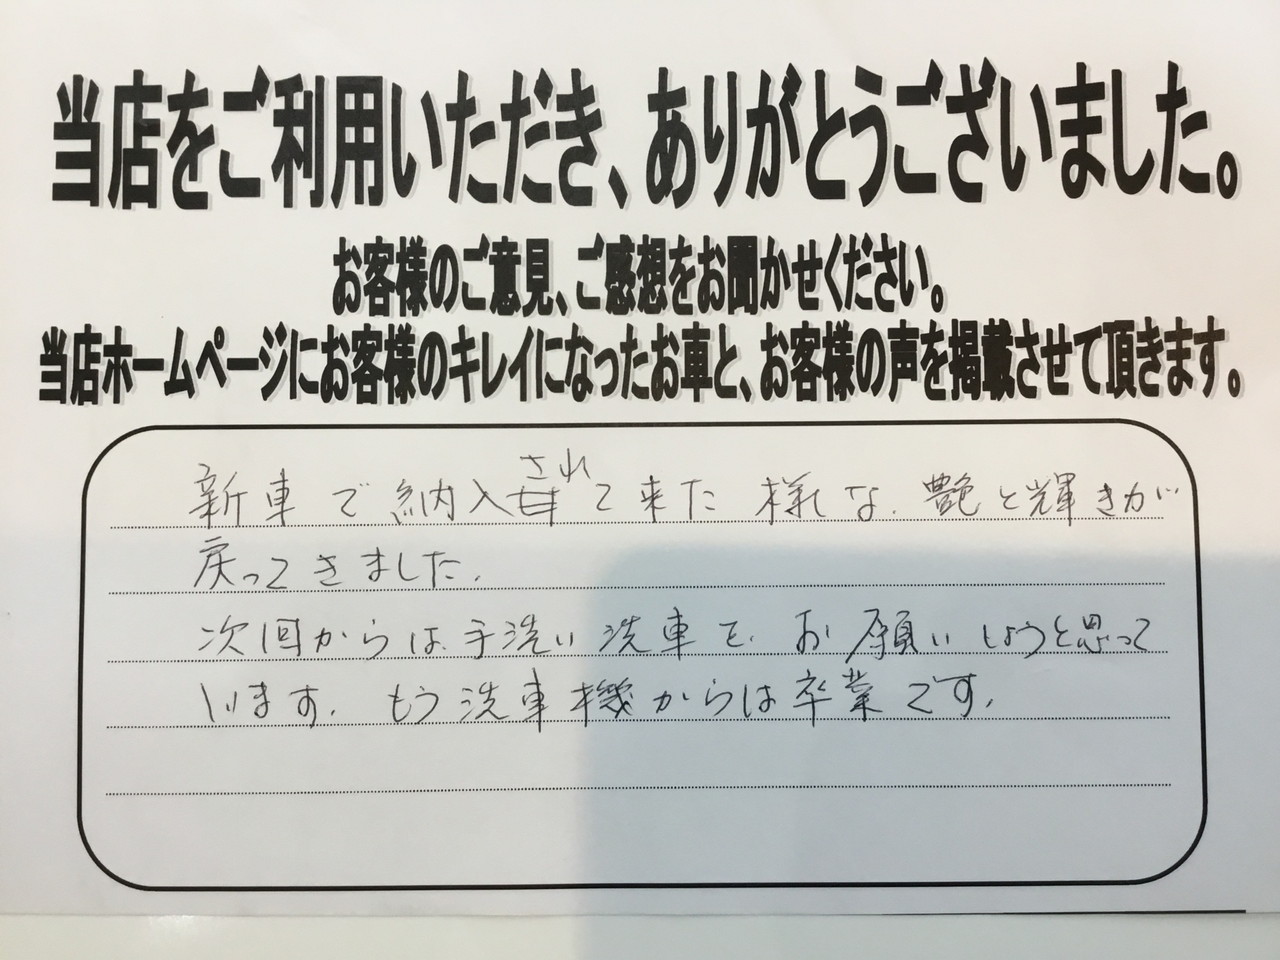 当店をご利用いただき、ありがとうございました。
お客様のご意見、ご感想をお聞かせください。
当店ホームページにお客様のキレイになったお車と、お客様の声を掲載させて頂きます。
新車で納入されて来た様な艶と輝きが
戻ってきました。
次回からは手洗い洗車を、お願いしようと思って
います。もう洗車機からは卒業です。